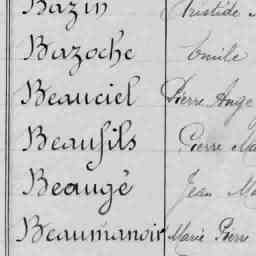 Bazin Aristide
Bazoche Emile
Beauciel Pierre Ange
Beaufils Pierre Ma
Beaugé Jean Ma
Beaumanoir Marie Pierre